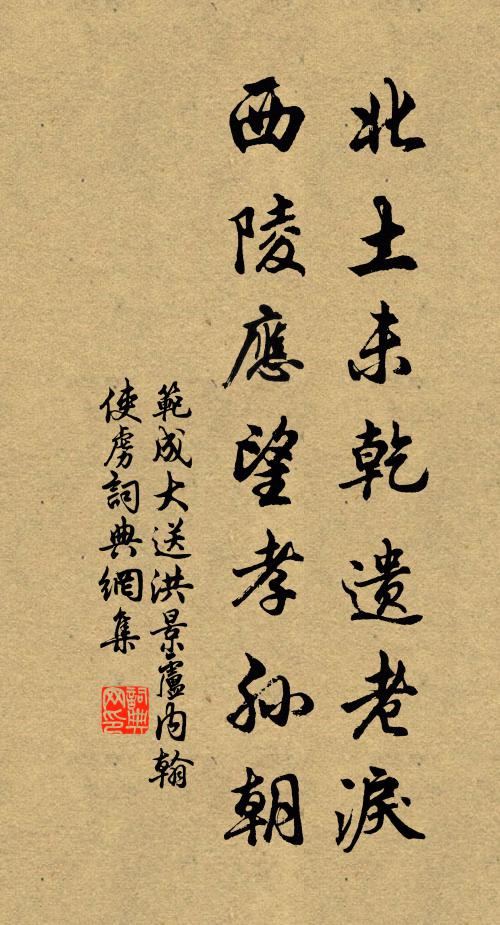 北土未乾遺老淚
西陵應望孝孙朝
範成大送洪景盧内翰
使虜詞典網集
詞典网印